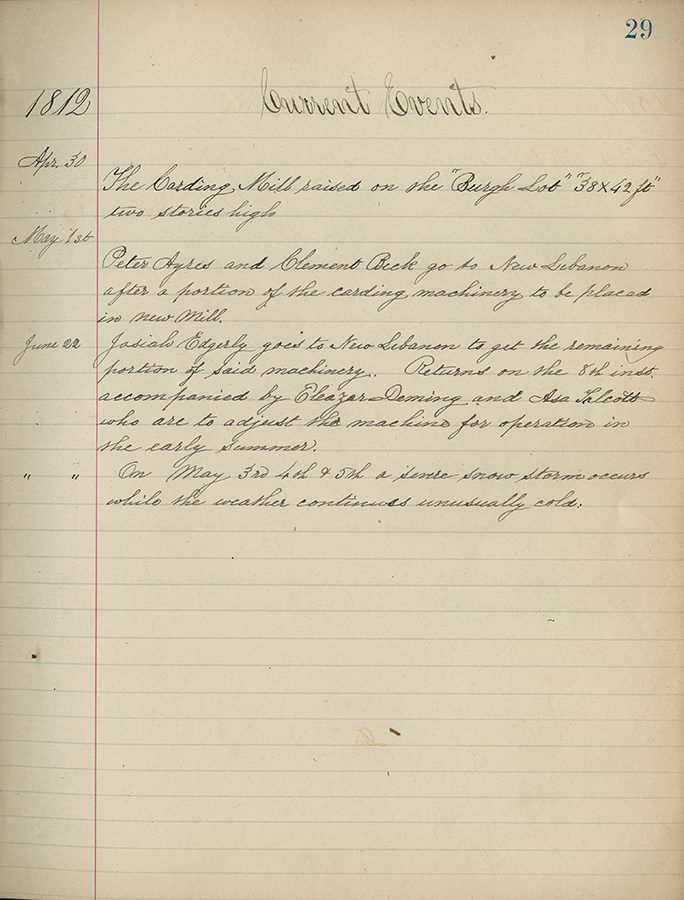 29
1812 Current Events.
Apr. 30
The Carding Mill raised on the "Burgh Lot" "38 x 42 ft"
two stories high
May 1st
Peter Ayres and Clement Beck go to New Lebanon
after a portion of the carding machinery to be placed
in new Mill.
June 22 Josiah Edgerly goes to New Lebanon to get the remaining
portion of said machinery. Returns on the 8th inst.
accompanied by Eleazar Deming and Asa Talcott
who are to adjust the machine for operation in
the early summer.
" " On May 3rd 4th & 5th a sevre snow storm occurs
while the weather continues unusually cold.